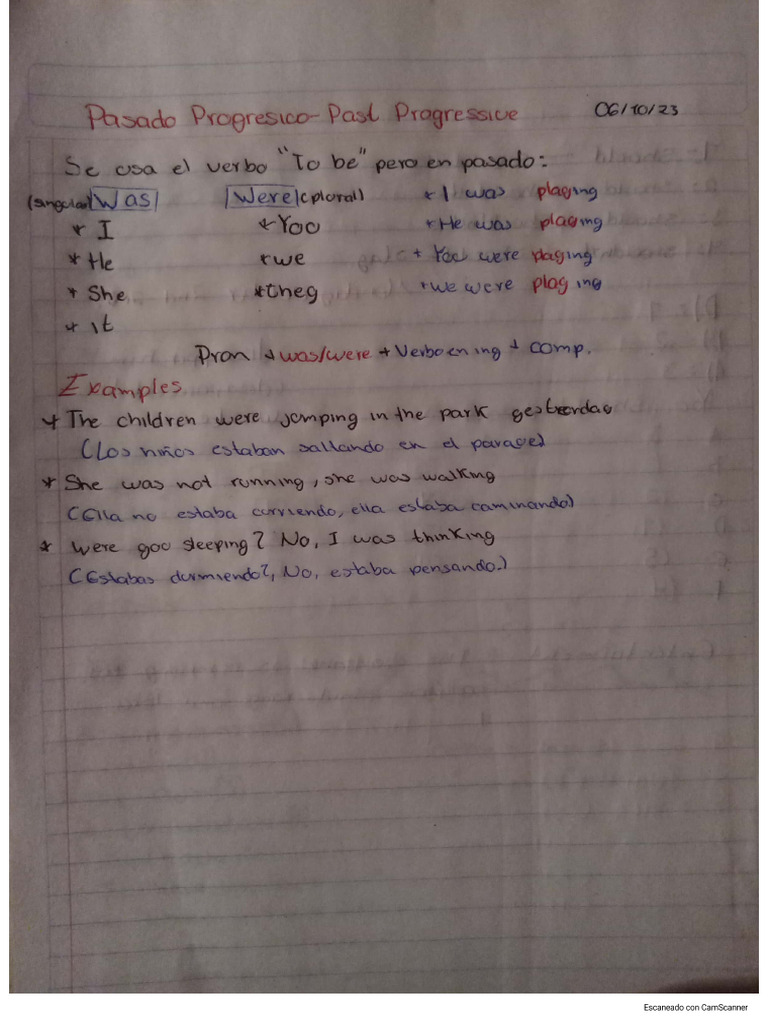 Pasado Progresico - Past Progressive 06/10/23
Se usa el verbo "To be" pero en pasado:
(singular) Was Were (plural) * I was playing
* I * You * He was playing
* He * we + You were playing
* She * they * we were playing
* it
Pron + was/were + Verbo en ing + comp.
Examples
* The children were jumping in the park yesterday
(Los niños estaban saltando en el parque)
* She was not running, she was walking
(Ella no estaba corriendo, ella estaba caminando)
* Were you sleeping? No, I was thinking
(Estabas durmiendo?, No, estaba pensando.)
Escaneado con CamScanner